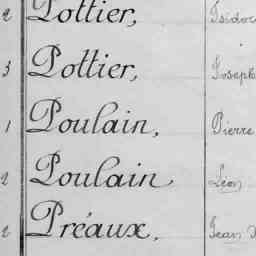 2 Pottier, Isidor
3 Pottier, Joseph
1 Poulain, Pierre
2 Poulain, Léon
2 Préaux, Jean